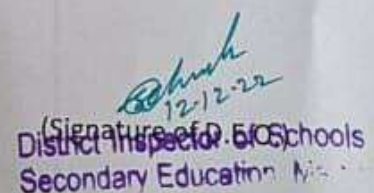 12-12-22
(Signature of D.E.O.)
District Inspector of Schools
Secondary Education